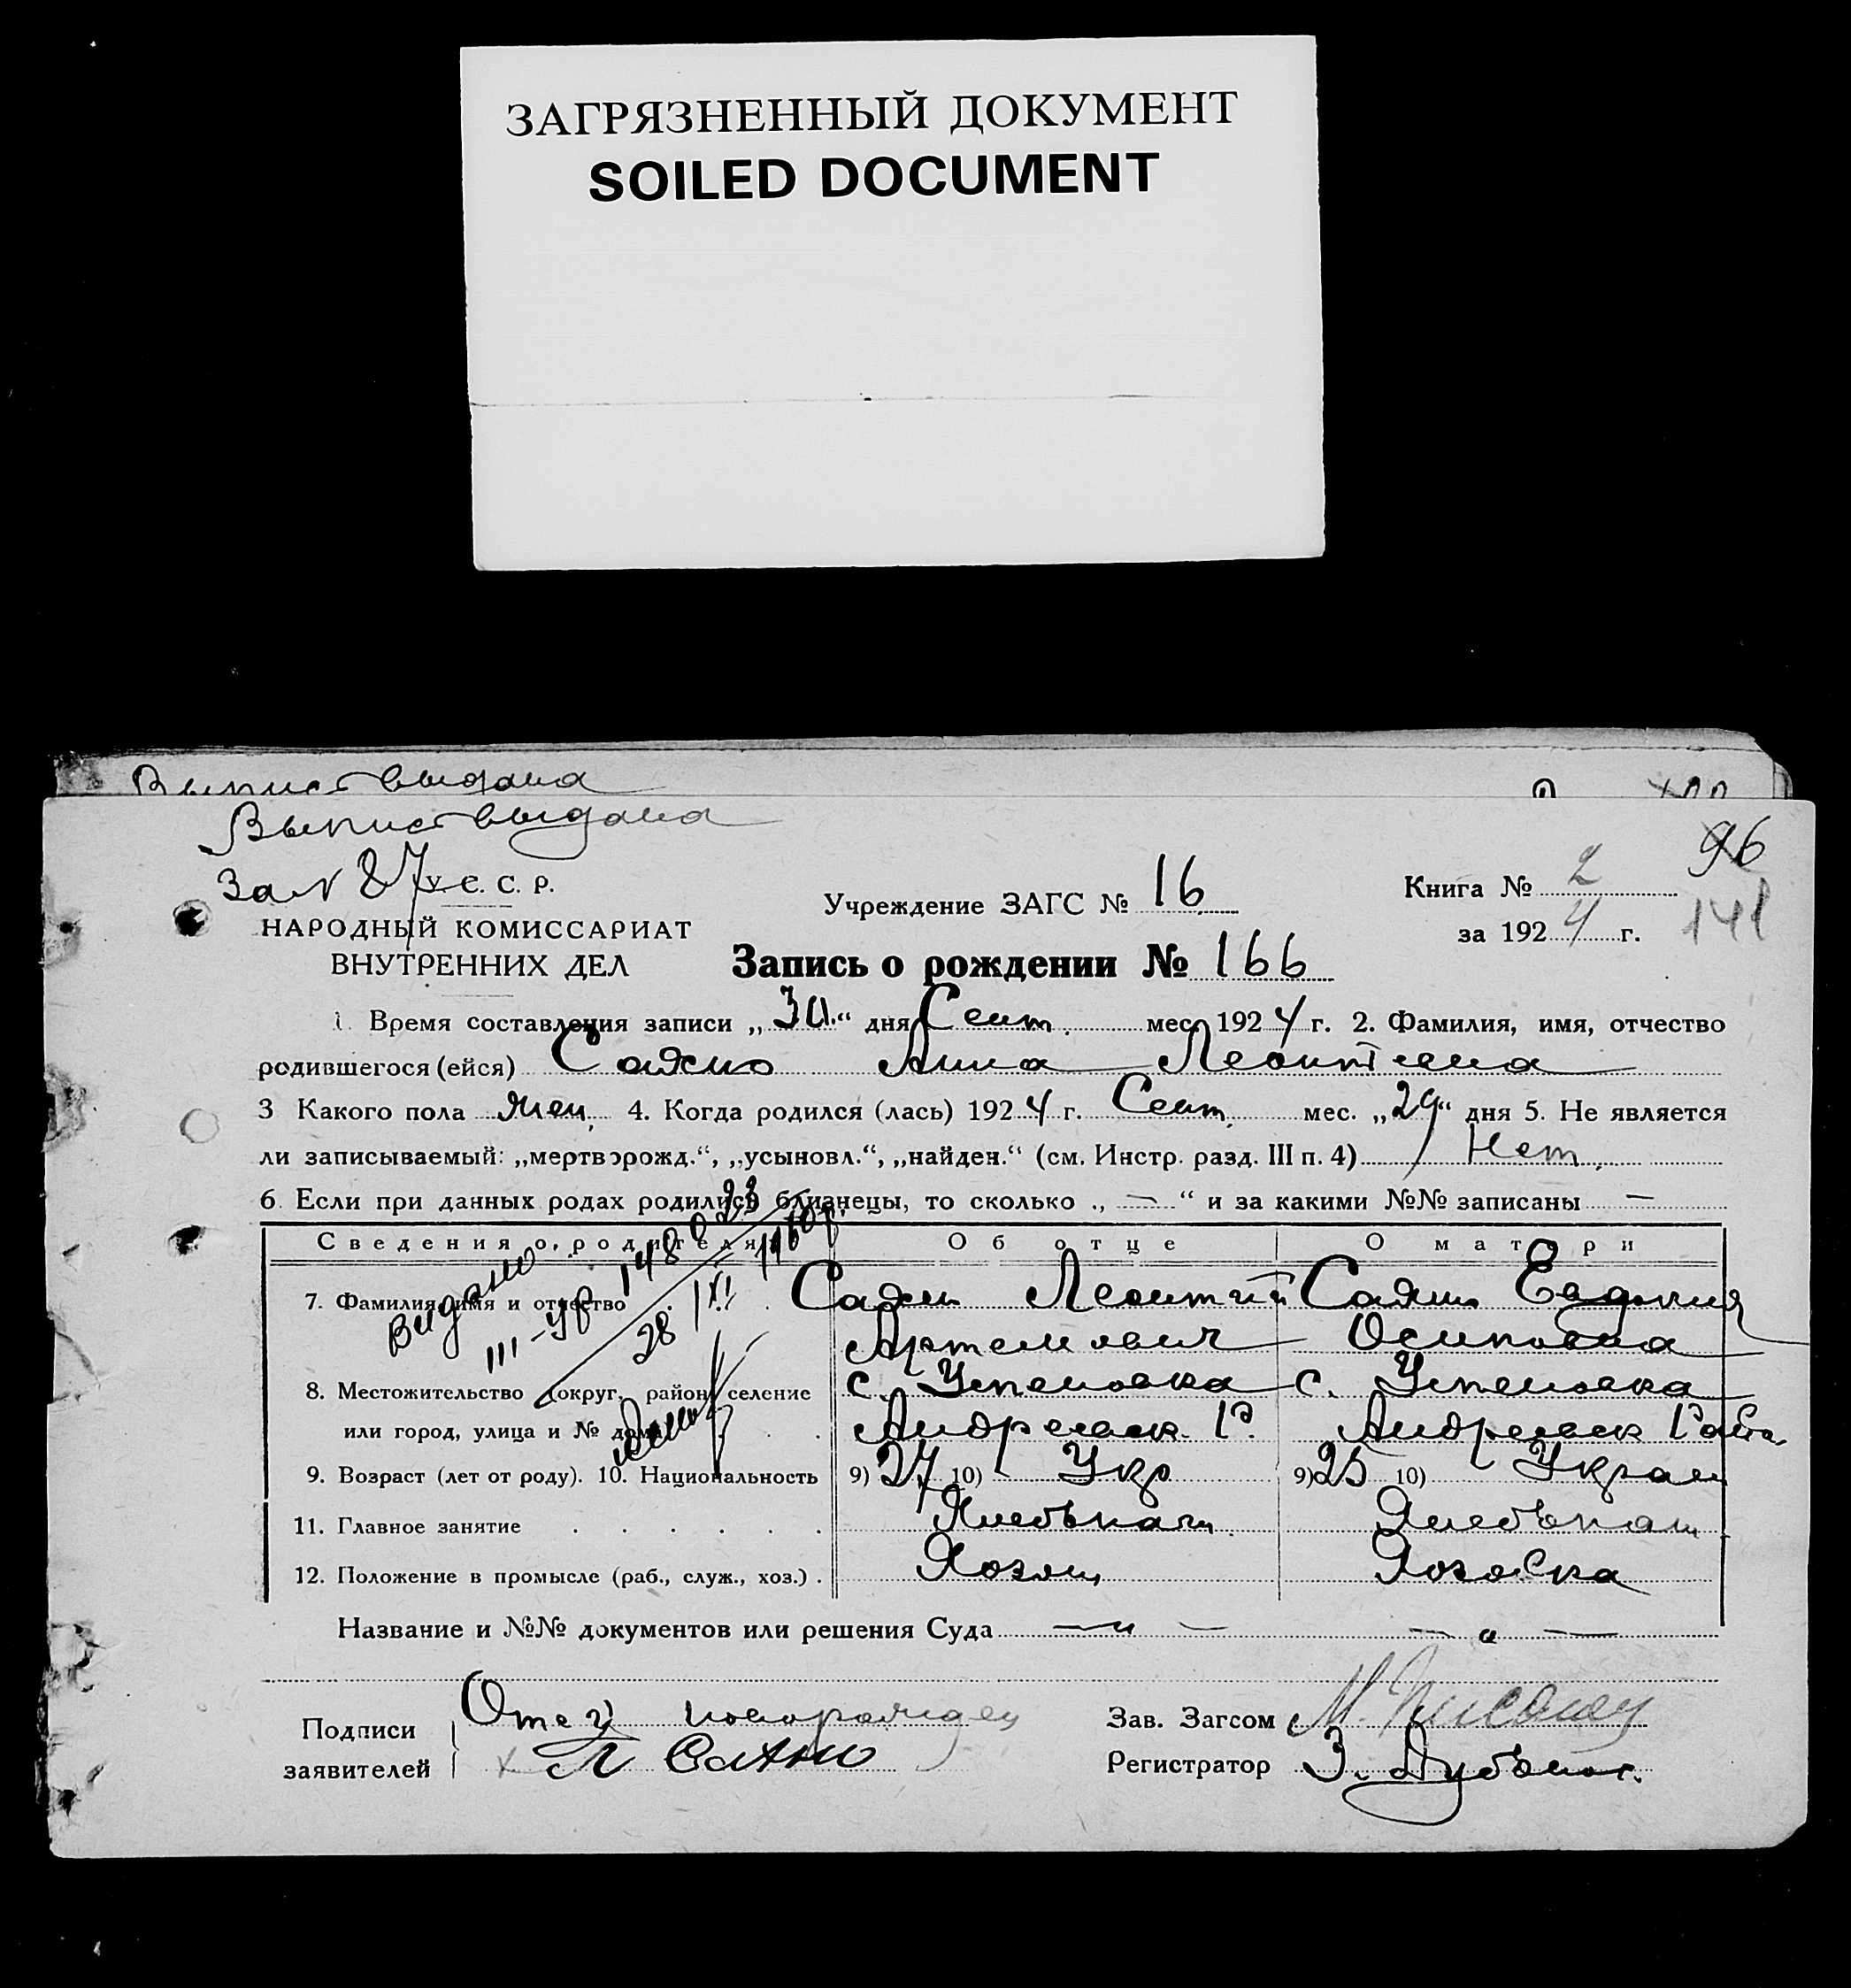 ЗАГРЯЗНЕННЫЙ ДОКУМЕНТ
SOILED DOCUMENT
Выпис выдана
Выпис выдана
За № 87
У. С. С. Р.
НАРОДНЫЙ КОМИССАРИАТ
ВНУТРЕННИХ ДЕЛ
Учреждение ЗАГС № 16
Книга № 2
96
за 1924 г.
141
Запись о рождении № 166
1. Время составления записи „30“ дня Сент. мес. 1924 г. 2. Фамилия, имя, отчество
родившегося (ейся) Сахно Анна Леонтиевна
3 Какого пола жен. 4. Когда родился (лась) 1924 г. Сент. мес. „29“ дня 5. Не является
ли записываемый: „мертворожд.“, „усыновл.“, „найден.“ (см. Инстр. разд. III п. 4) Нет.
6. Если при данных родах родились близнецы, то сколько „ — “ и за какими №№ записаны —
Сведения о родителях
Об отце
О матери
Видано
III-УР 148023
28/XI
7. Фамилия, имя и отчество
Сахно Леонтий
Артемович
Сахно Евдокия
Осиповна
8. Местожительство (округ, район, селение
или город, улица и № дома)
с. Успеновка
Андреевск. Р.
с. Успеновка
Андреевск Район
9. Возраст (лет от роду). 10. Национальность
9) 27 10) Укр
9) 25 10) Украин
11. Главное занятие
Хлебопаш.
Хлебопаш
12. Положение в промысле (раб., служ., хоз.)
Хозяин
Хозяйка
Название и №№ документов или решения Суда — „ — — „ —
Подписи
заявителей
Отец новорожден
Л Сахно
Зав. Загсом
Регистратор